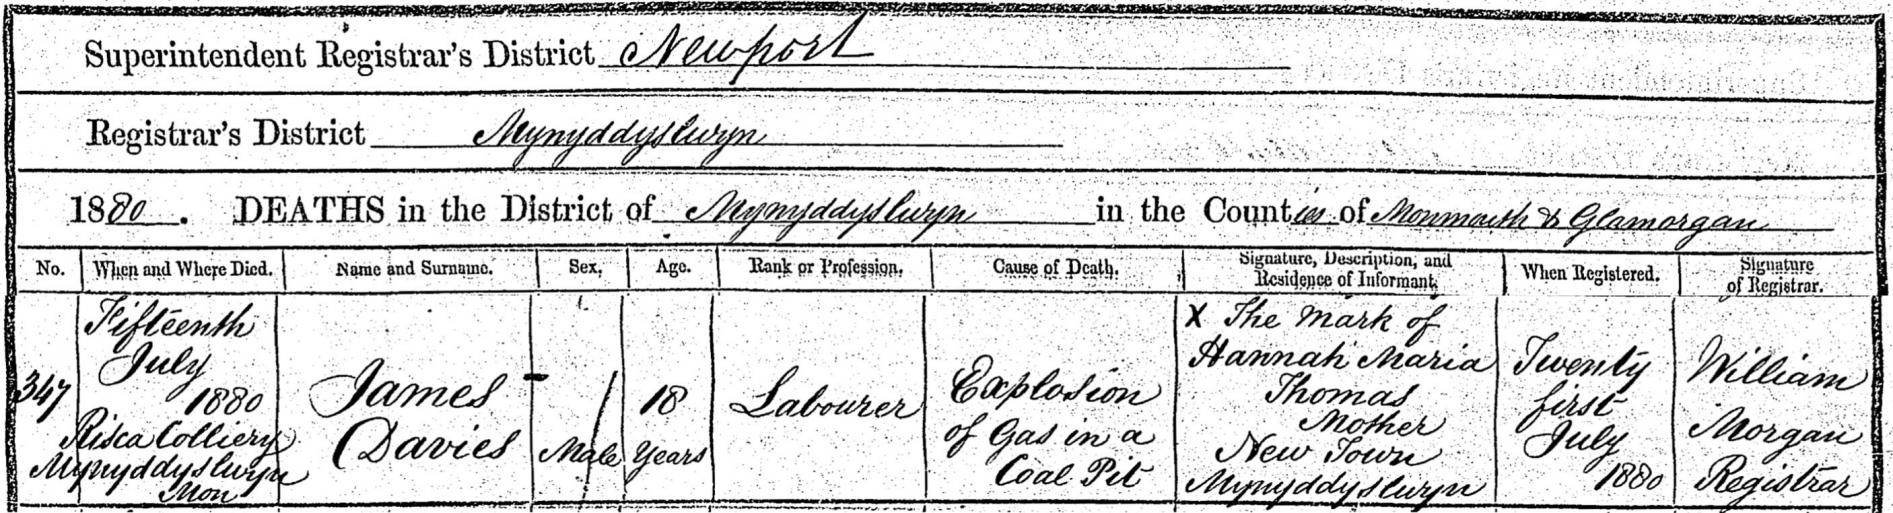 Superintendent Registrar's District Newport
Registrar's District Mynyddyslwyn
1880. DEATHS in the District of Mynyddyslwyn in the Counties of Monmouth & Glamorgan
No. When and Where Died. Name and Surname. Sex. Age. Rank or Profession. Cause of Death. Signature, Description, and Residence of Informant. When Registered. Signature of Registrar.
347
Fifteenth
July
1880
Risca Colliery
Mynyddyslwyn
Mon
James
Davies
Male
18
Years
Labourer
Explosion
of Gas in a
Coal Pit
X The mark of
Hannah Maria
Thomas
Mother
New Town
Mynyddyslwyn
Twenty
first
July
1880
William
Morgan
Registrar